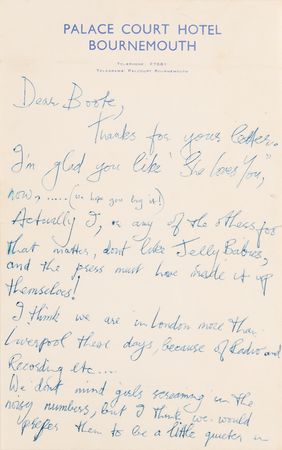 PALACE COURT HOTEL
BOURNEMOUTH
TELEPHONE
TELEGRAMS: PALCOURT BOURNEMOUTH
Dear Boofe,
Thanks for your letter.
I'm glad you like "She Loves You,"
now, ..... (we hope you buy it!)
Actually I, or any of the others for
that matter, don't like Jelly Babies,
and the press must have made it up
themselves!
I think we are in London more than
Liverpool these days, because of Radio and
Recording etc....
We don't mind girls screaming in the
noisy numbers, but I think we would
prefer them to be a little quieter in